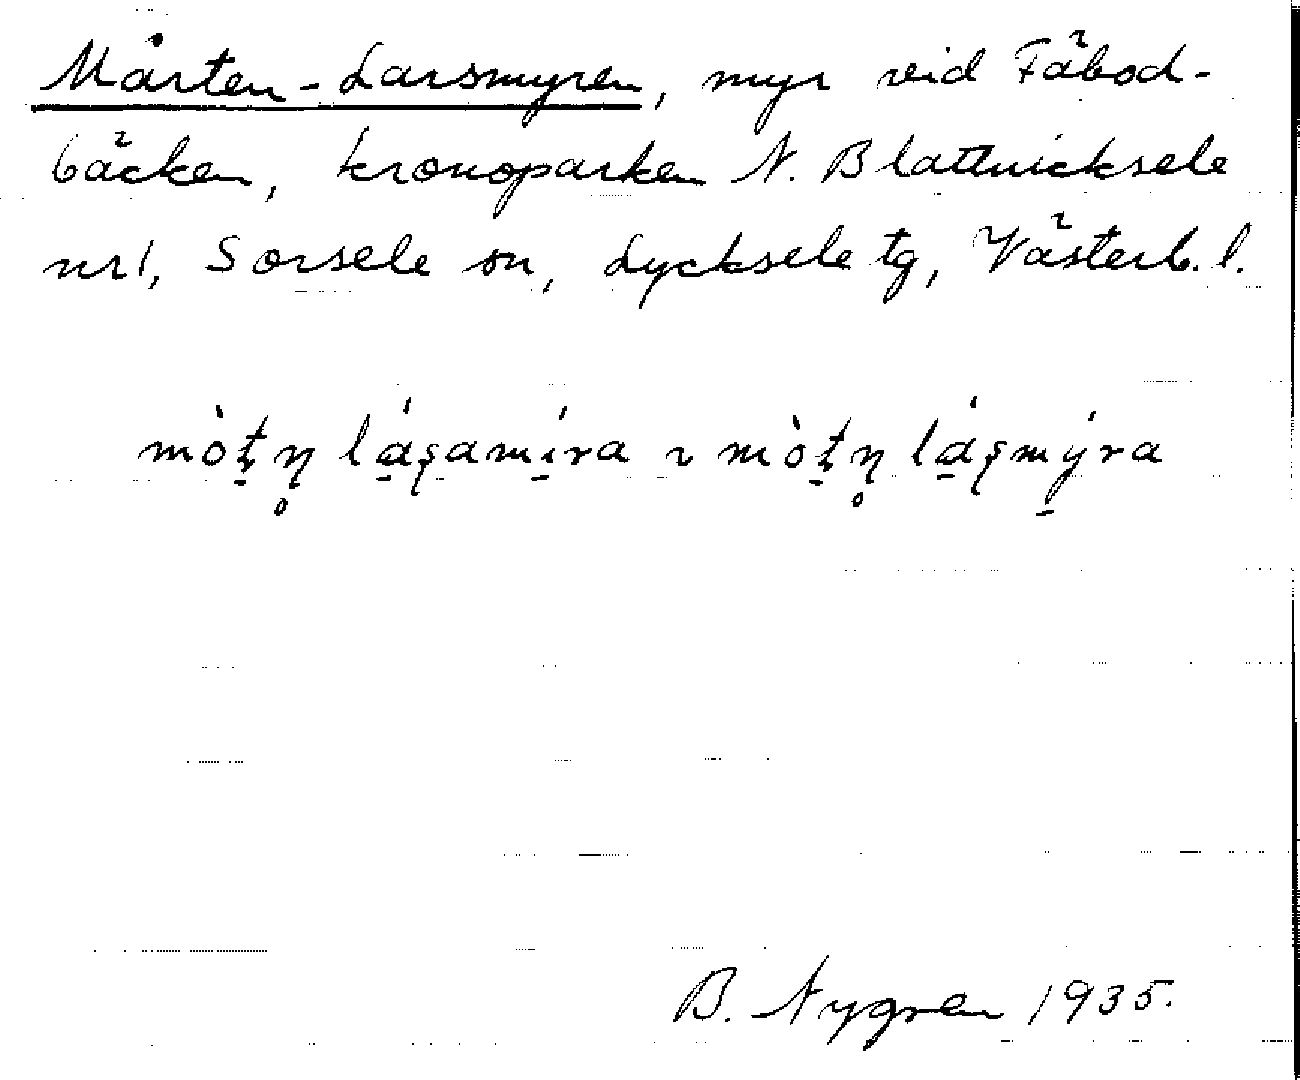 Mårten-Larsmyren, myr vid Fäbod-
bäcken, kronoparken N. Blattnicksele
nr 1, Sorsele sn, Lycksele tg, Västerb. l.
mòt̲n̥ lá̲s̨amí̲ra ɿ mòt̲n̥ lá̲s̨mý̲ra
B. Nygren 1935.